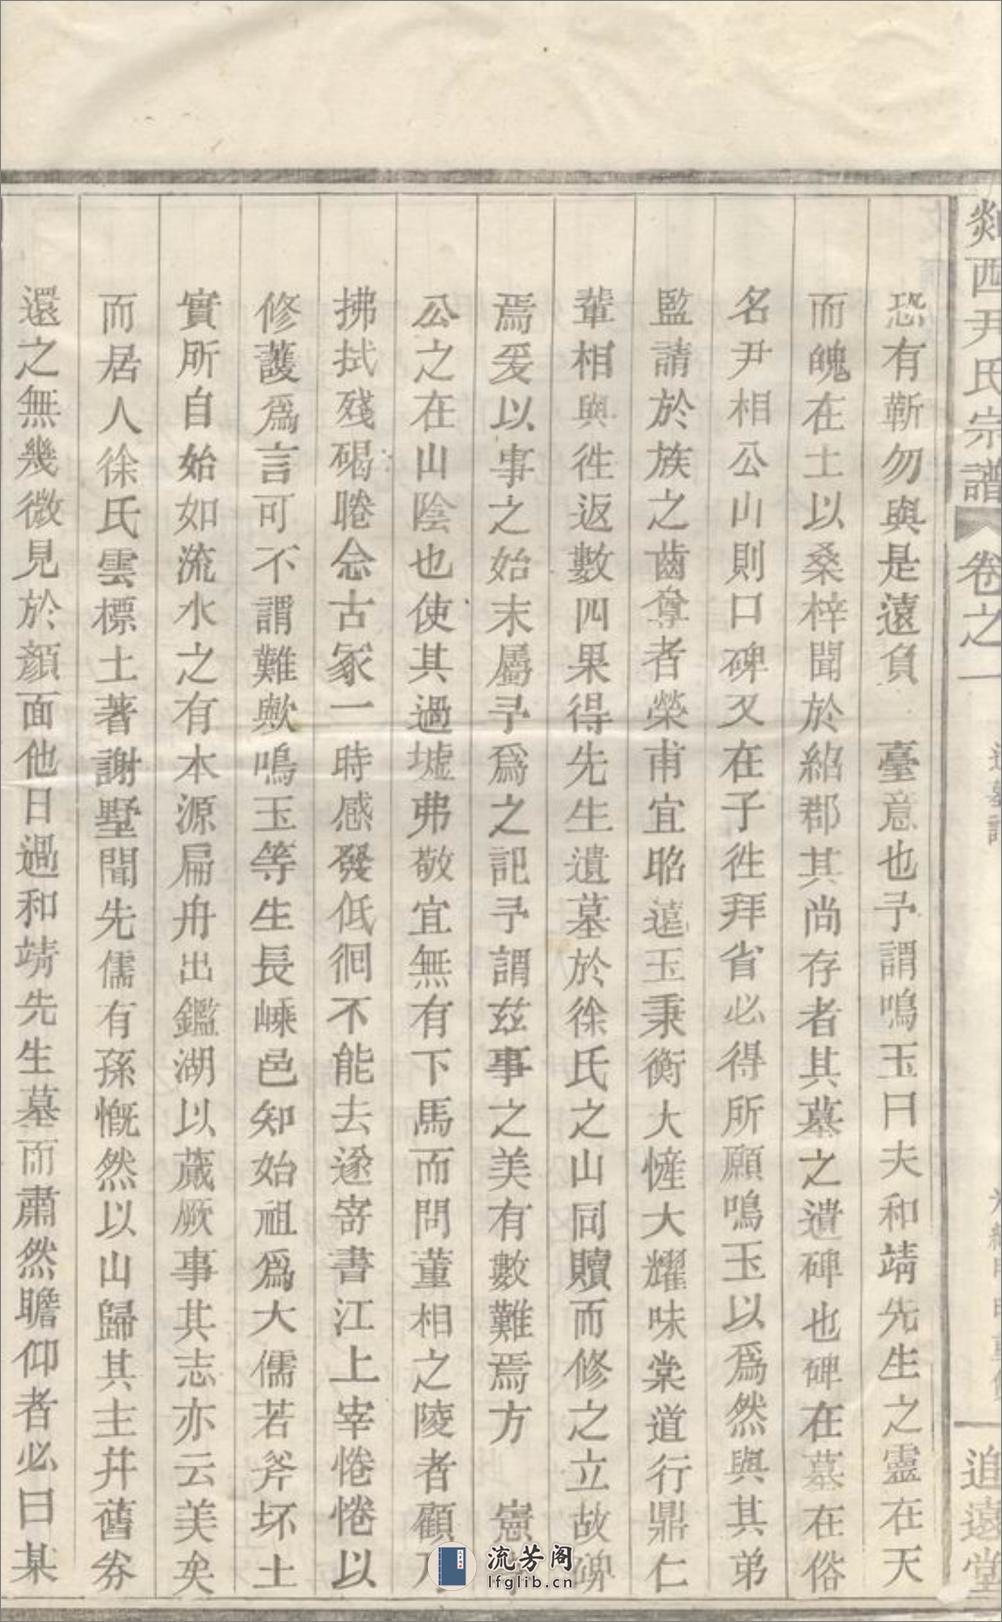 剡西尹氏宗譜 卷之一 追遠堂
恐有靳勿與是遠負 臺意也予謂鳴玉曰夫和靖先生之靈在天
而魄在土以桑梓聞於紹郡其尚存者其墓之遺碑也碑在墓在俗
名尹相公山則口碑又在子徃拜省必得所願鳴玉以為然與其弟
監請於族之齒尊者榮甫宜昭蘧玉秉衡大㦃大耀味棠道行鼎仁
輩相與徃返數四果得先生遺墓於徐氏之山同贖而修之立故碑
焉爰以事之始末屬予爲之記予謂茲事之美有數難焉方 憲
公之在山陰也使其過墟弗敬宜無有下馬而問董相之陵者顧乃
拂拭殘碣睠念古冢一時感發低徊不能去遂寄書江上宰惓惓以
修護爲言可不謂難歟鳴玉等生長嵊邑知始祖爲大儒若斧坏土
實所自始如流水之有本源扁舟出鑑湖以蕆厥事其志亦云美矣
而居人徐氏雲標土著謝墅聞先儒有孫慨然以山歸其主并舊券
還之無幾微見於顏面他日過和靖先生墓而肅然瞻仰者必曰某
流芳阁
lfglib.cn